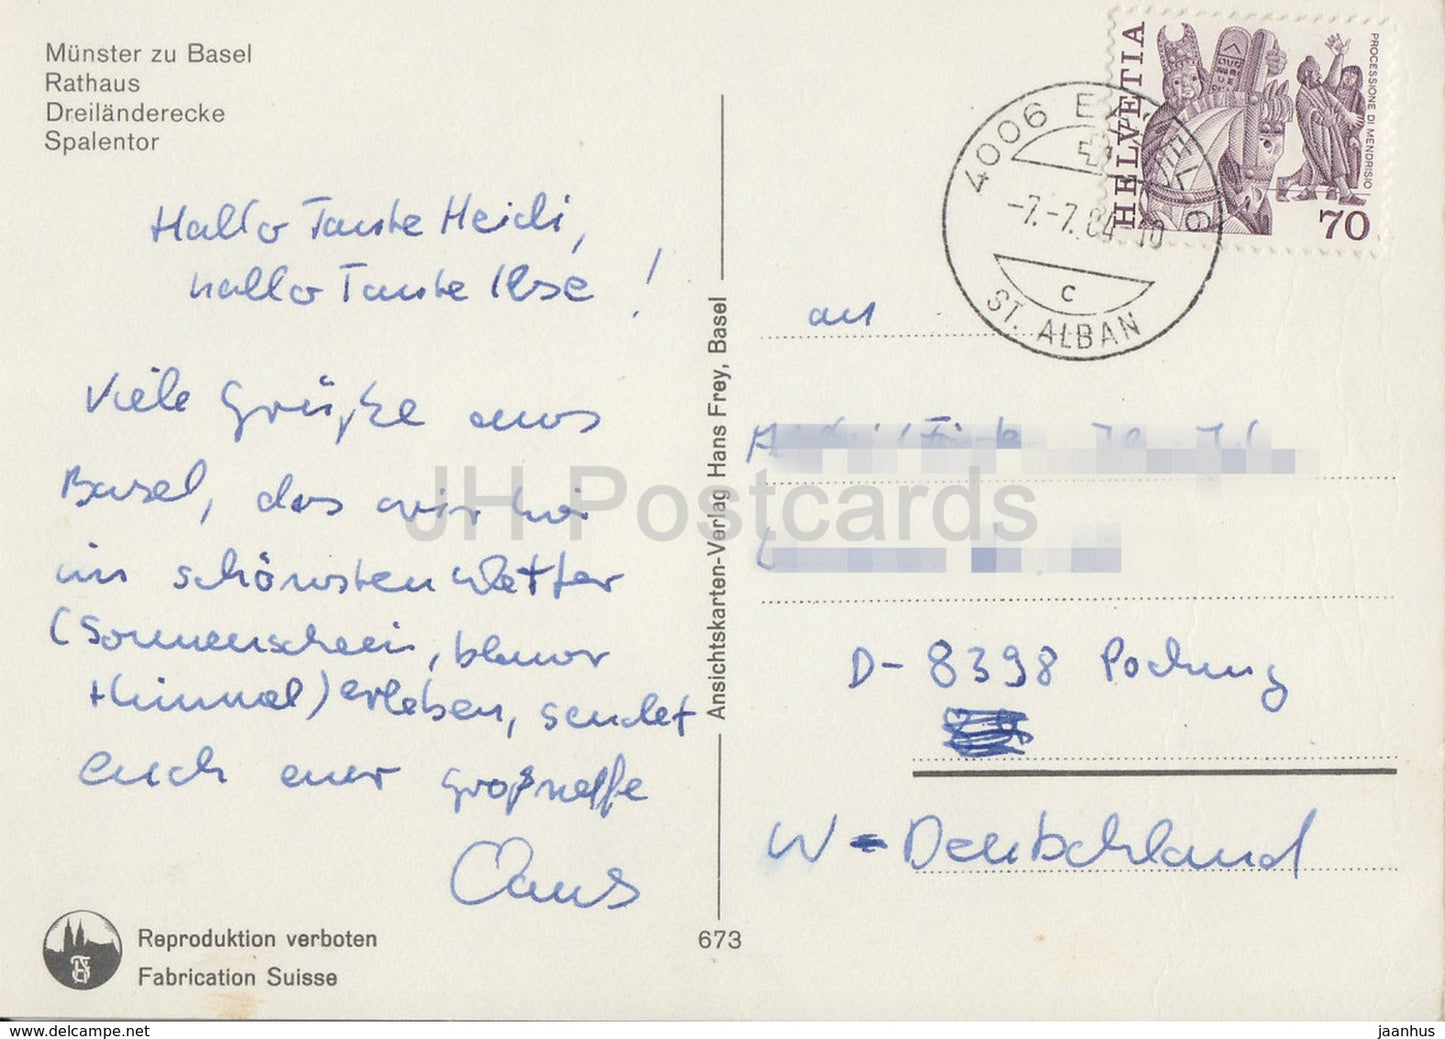 Münster zu Basel
Rathaus
Dreiländerecke
Spalentor
Hallo Tante Heidi,
hallo Tante Ilse !
Viele Grüße aus
Basel, das wir hier
im schönsten Wetter
(Sonnenschein, blauer
Himmel) erleben, sendet
euch euer Großneffe
Claus
Reproduktion verboten
Fabrication Suisse
673
Ansichtskarten-Verlag Hans Frey, Basel
HELVETIA
PROCESSIONE DI MENDRISIO
70
4006 BASEL 6
-7.-7.84-10
C
ST. ALBAN
an
D-8398 Pocking
W-Deutschland
JH Postcards
jaanhus - delcampe.net